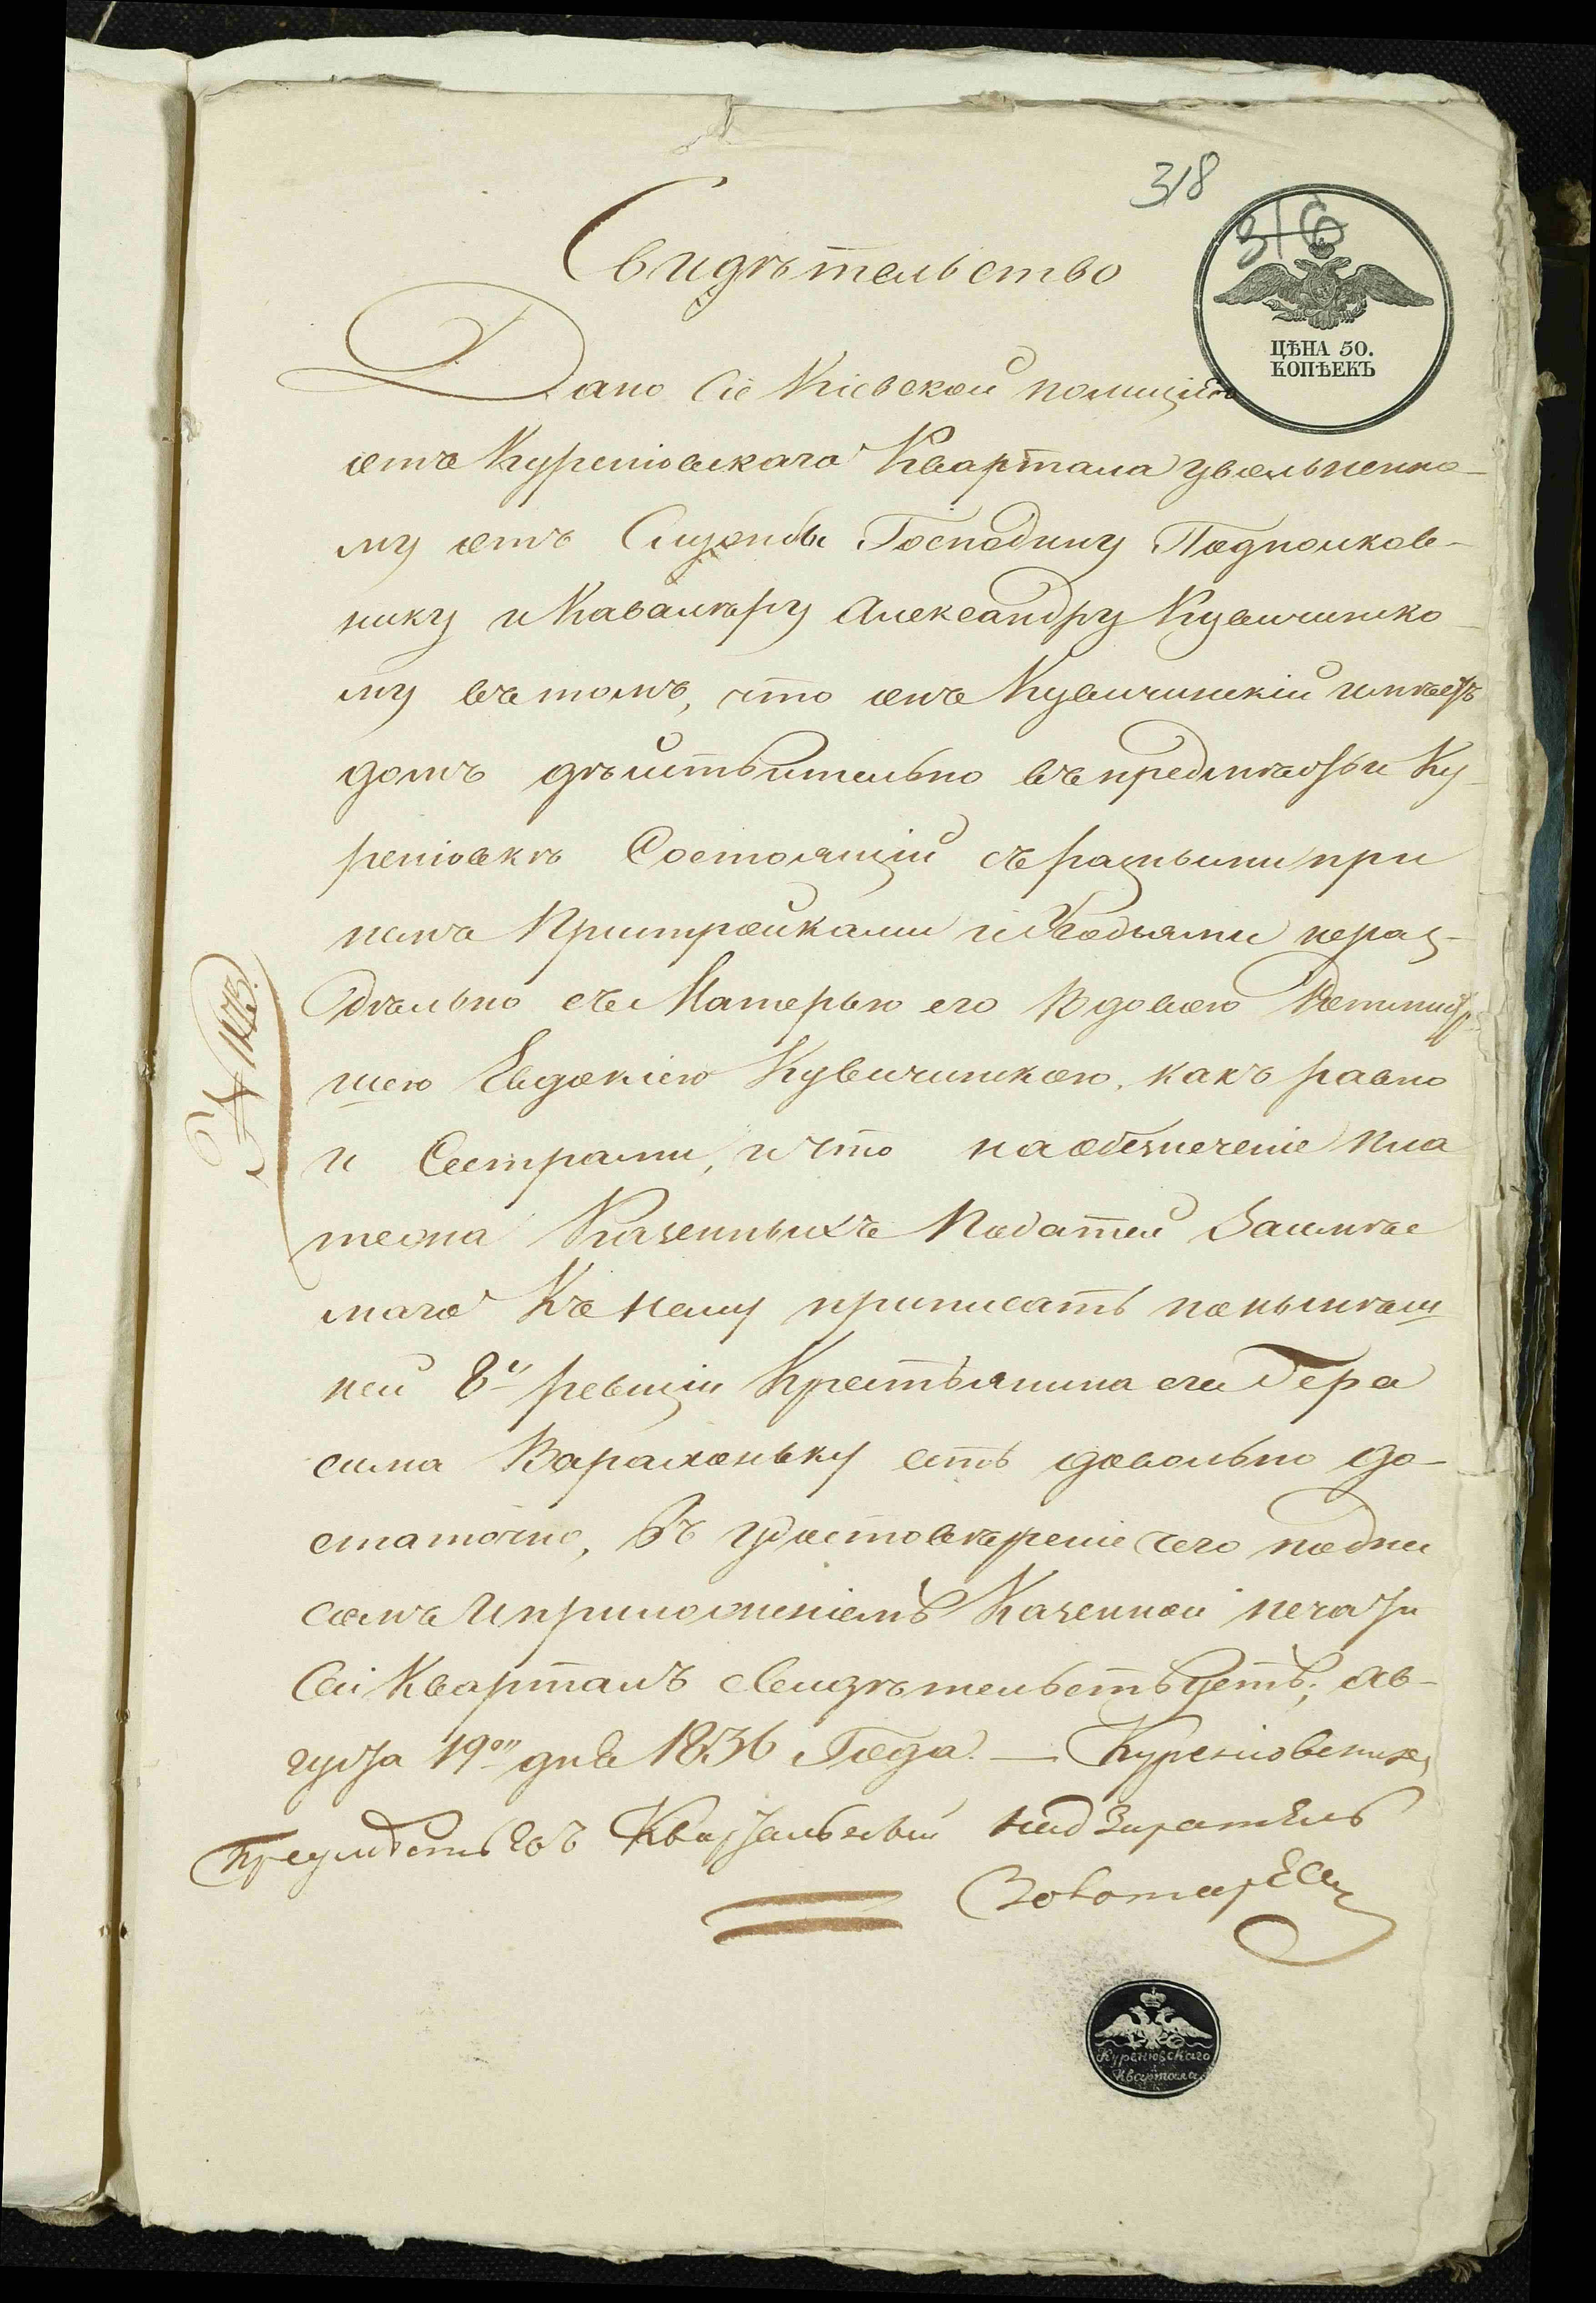 318
316
Свидѣтельство
ЦѢНА 50.
КОПѢЕКЪ
Дано Сіе Кіевской полиціи
отъ Куреніовскаго Квартала уволненно-
му отъ Службы Господину Подполков-
нику и Кавалѣру Александру Кувичинско-
му въ томъ, что онъ Кувичинскій имѣетъ
домъ дѣйствительно въ предмѣстьи Ку-
реніовкѣ Состоящій съ разными при
немъ Пристройками и Угодьями нераз-
дѣльно съ Матерью его Вдовою
шею Евдокіею Кувичинскою, какъ равно
и Сестрами, и что на обезпеченіе пла
тежа Казенныхъ Податей Заимѣе
маго Къ нему приписать по нынѣш
ней 8й ревизіи Крестьянина его Гера
сима Вараконьку есть довольно до-
статочно, Въ удостовѣреніе чего подпи
сомъ И приложеніемъ Казенной печати
Сей Кварталъ Свидѣтельствуетъ; Ав-
густа 19го дня 1836 Года. — Куреніовских
Предмѣстьевъ Квартальный Надзиратель
Золотарев
Куреніовскаго
Квартала